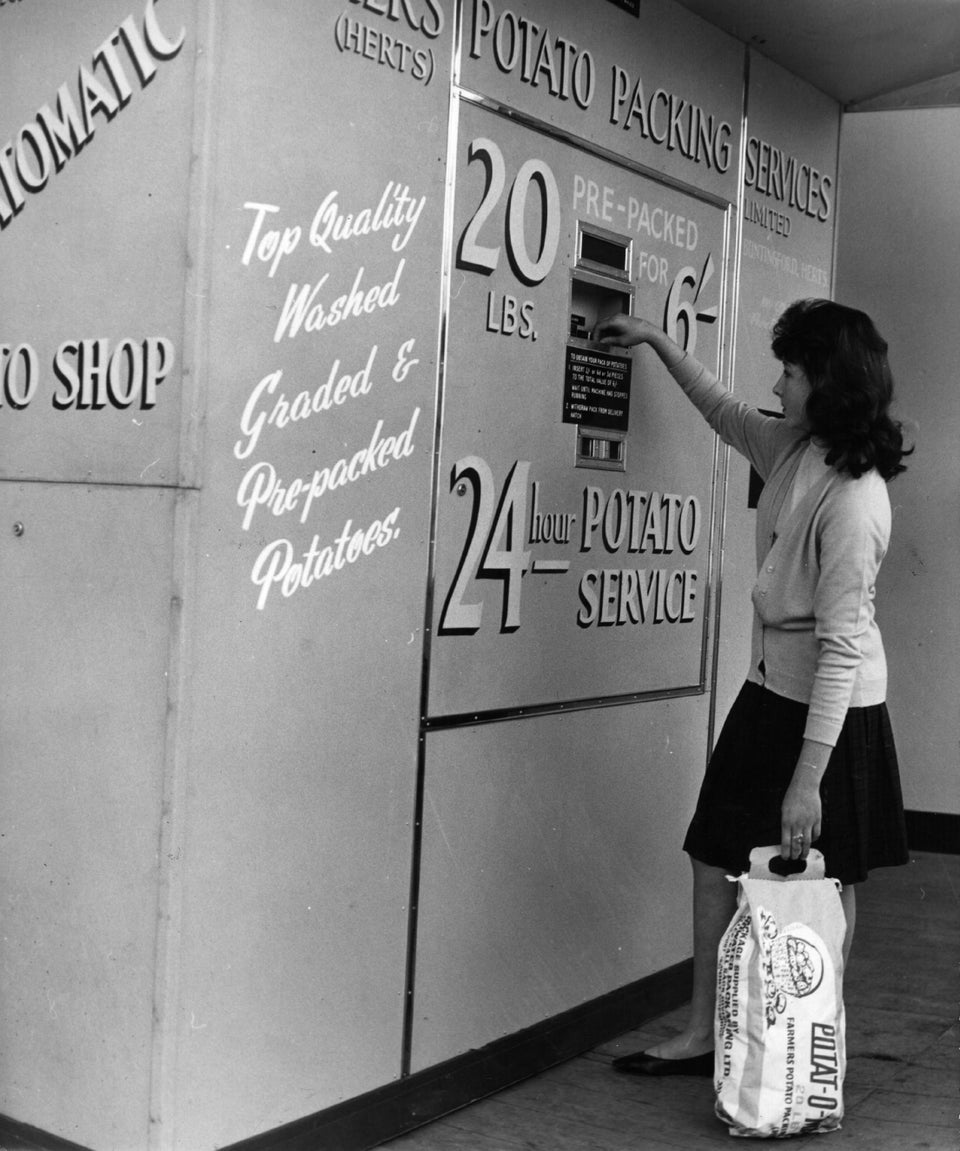 TOMATIC
TO SHOP
ERS
(HERTS)
Top Quality
Washed
Graded &
Pre-packed
Potatoes.
POTATO PACKING SERVICES
LIMITED
BUNTINGFORD, HERTS
20
LBS.
PRE-PACKED
FOR
6/-
TO OBTAIN YOUR PACK OF POTATOES
TO THE TOTAL VALUE OF 6/-
WAIT UNTIL MACHINE HAS STOPPED
RUNNING
2. WITHDRAW PACK FROM DELIVERY
HATCH
24 hour POTATO
SERVICE
POTAT-O-
20 L
FARMERS POTATO PACK
PACKAGE SUPPLIED BY
PACKAGING LTD.